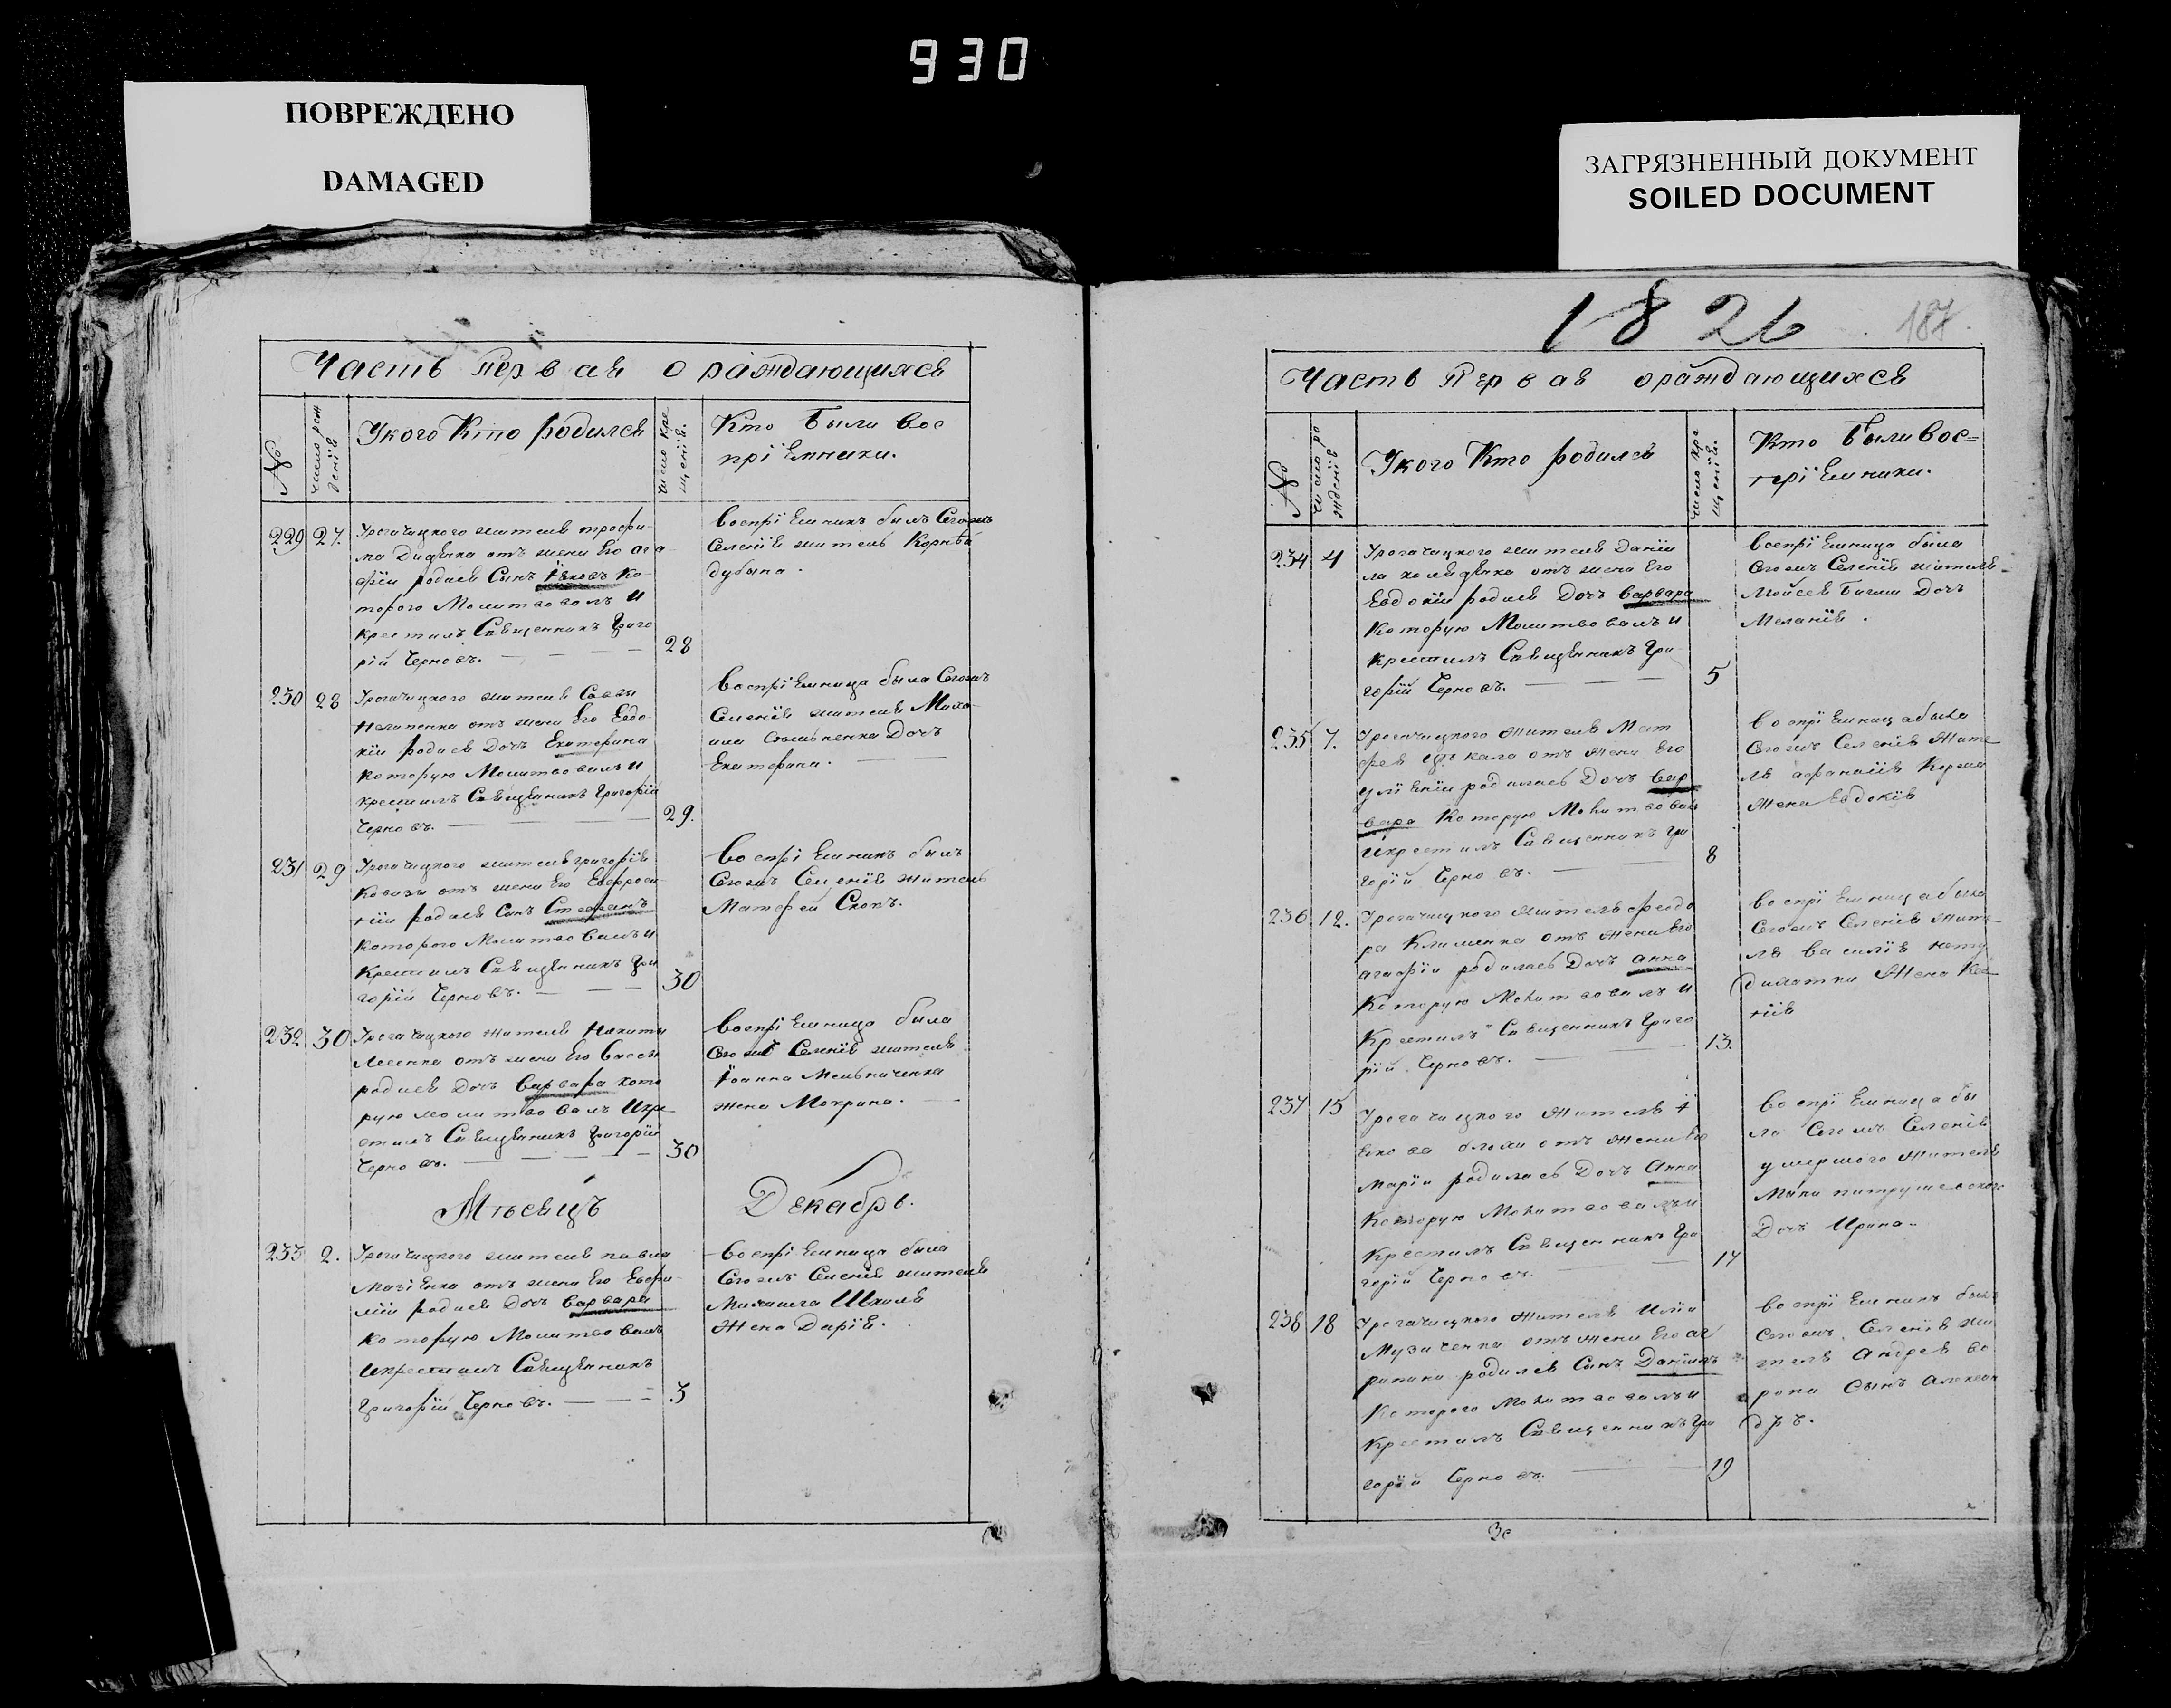 930
ПОВРЕЖДЕНО
DAMAGED
ЗАГРЯЗНЕННЫЙ ДОКУМЕНТ
SOILED DOCUMENT
Часть Первая о раждающихся
№
число рож
денія
Укого Кто родился
число кре
щенія.
Кто были вос
пріемники.
229 27. Урогачицкого жителя трофи
ма от жени его ага
фіи родился Сынъ Іяковъ ко
торого Молитвовалъ и
крестилъ Священникъ Григо
рій Черновъ. 28
воспріемникъ былъ Сегожъ
Селенія житель Корнѣй
дубына.
230 28 Урогачицкого жителя Саввы
от жени его Евдо
кіи родися Дочъ Екатерина
которую Молитвовалъ и
крестилъ Священникъ Григорій
Черновъ. 29.
воспріемница была Сегожъ
Селенія жителя Миха
ила Дочъ
Екатерина.
231 29 Урогачицкого жителя григорія
Козазы отъ жени его Евфроси
ніи родися Сынъ Стефанъ
которого Молитвовалъ и
Крестилъ Священникъ Гри
горій Черновъ. 30
Воспріемникъ былъ
Сегожъ Селенія житель
Матфей Скокъ.
232 30 Урогачицкого жителя Никиты
Лесенка отъ жени его Вассы
родися Дочъ Варвара кото
рую молитвовалъ Икре
стилъ Священникъ Григорій
Черновъ. 30
воспріемница была
Сегожъ Селенія жителя
Іоанна Мельниченка
жена Мокрина.
Мѣсяцъ Декабрь.
233 2. Урогачицкого жителя павла
отъ жени его Евфи
міи родися Дочъ Варвара
которую Молитвовалъ
Икрестилъ Священникъ
Григорій Черновъ. 3
Воспріемница была
Сегожъ Селенія жителя
Михаила Шкиля
Жена Дарія.
1826
187.
Часть Первая ораждающихся
№
число ро
жденія
Укого Кто родился
число кре
щенія.
Кто были вос=
пріемники.
234 4 Урогачицкого жителя Даніи
ла отъ жени Его
Евдокіи родися Дочъ Варвара
Которую Молитвовалъ и
Крестилъ Священникъ Гри
горій Черновъ. 5
воспріемница была
Сегожъ Селенія жителя
Мойсея Дочъ
Меланія.
235 7. Урогачицкого жителя Мат
фея отъ жени Его
уліяніи родилась Дочъ Вар
вара Которую Молитвовалъ
Икрестилъ Священникъ Гри
горій Черновъ. 8
воспріемница была
Сегожъ Селенія Жите
ля афанасія Коржа
Жена Евдокія
236 12. Урогачицкого жителя феодо
ра Клименка отъ жени Его
агафіи родилась Дочъ Анна
Которую Молитвовалъ и
Крестилъ Священникъ Григо
рій Черновъ. 13.
воспріемница была
Сегожъ Селенія Жите
ля Василія
Жена Ксе
нія
237 15 Урогачицкого жителя І
якова блохи отъ жени Его
Маріи родилась Дочъ Анна
Которую Молитвовалъ и
Крестилъ Священникъ Гри
горій Черновъ. 17
Воспріемница бы
ла Сегожъ Селенія
умершого Жителя
Дочъ Ирина.
238 18 Урогачицкого жителя Иліи
Музиченка отъ жени Его аг
рипини родился Сынъ Даніилъ
Которого Молитвовалъ и
Крестилъ Священникъ Гри
горій Черновъ. 19
воспріемникъ былъ
Сегожъ Селенія жи
теля Андрея во
рона Сынъ Алексан
дръ.